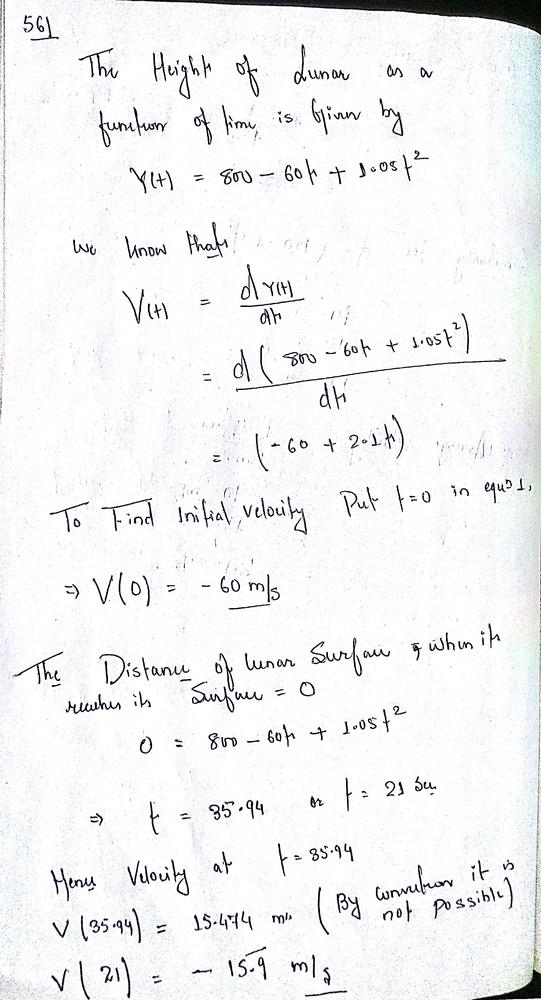 56)
The Height of Lunar as a
function of time, is Given by
Y(t) = 800 - 60t + 1.05t²
we know that
V(t) = dY(t)/dt
= d(800 - 60t + 1.05t²)/dt
= (-60 + 2.1t)
To Find Initial velocity Put t=0 in equⁿ 1,
⇒ V(0) = -60 m/s
The Distance of lunar Surface & when it
reaches its Surface = 0
0 = 800 - 60t + 1.05t²
⇒ t = 35.94 or t = 21 Sec
Hence Velocity at t = 35.94
V(35.94) = 15.474 m/s (By convention it is
not possible)
V(21) = - 15.9 m/s